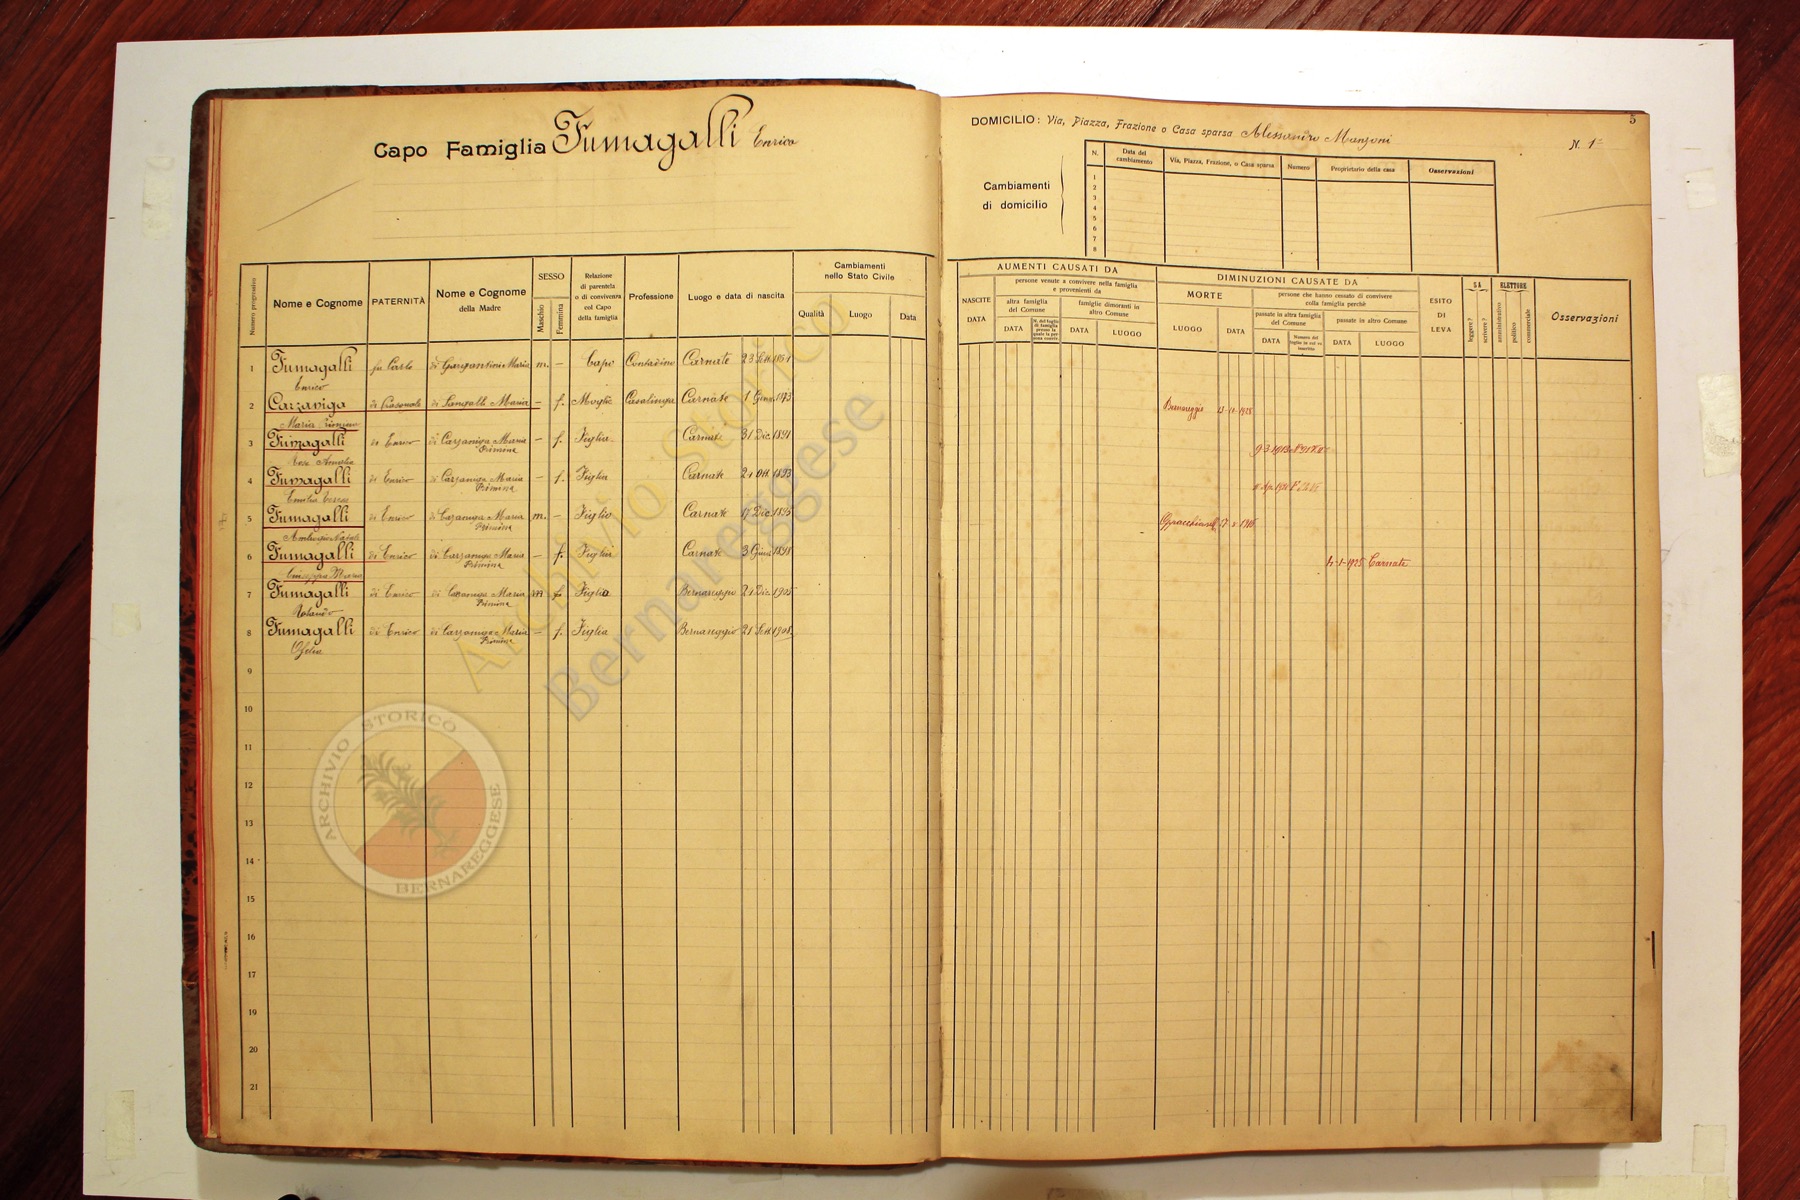 Capo Famiglia Fumagalli Enrico
Numero progressivo
Nome e Cognome
PATERNITÀ
Nome e Cognome
della Madre
SESSO
Maschio
Femmina
Relazione
di parentela
o di convivenza
col Capo
della famiglia
Professione
Luogo e data di nascita
Cambiamenti
nello Stato Civile
Qualità
Luogo
Data
1 Fumagalli fu Carlo di Garzantini Maria m. – Capo Contadino Carnate 23 Sett.
Enrico
2 Carzaniga di Pasquale di Sangalli Maria – f. Moglie Casalinga Carnate 1 Genn. 1873
Maria
3 Fumagalli di Enrico di Carzaniga Maria – f. Figlia Carnate 31 Dic. 1891
Primina
Rosa Amalia
4 Fumagalli di Enrico di Carzaniga Maria – f. Figlia Carnate Ott. 1893
Primina
Emilia Teresa
5 Fumagalli di Enrico di Carzaniga Maria m. – Figlio Carnate 17 Dic. 1895
Primina
Ambrogio Natale
6 Fumagalli di Enrico di Carzaniga Maria – f. Figlia Carnate 3 1898
Primina
Giuseppa Maria
7 Fumagalli di Enrico di Carzaniga Maria m f Figlia Bernareggio Dic. 1905
Primina
Rolando
8 Fumagalli di Enrico di Carzaniga Maria – f. Figlia Bernareggio 21 Sett. 1908
Primina
Ofelia
9
10
11
12
13
14
15
16
17
18
19
20
21
5
DOMICILIO: Via, Piazza, Frazione o Casa sparsa Alessandro Manzoni
N. 1
Cambiamenti
di domicilio
N.
Data del
cambiamento
Via, Piazza, Frazione, o Casa sparsa
Numero
Proprietario della casa
Osservazioni
1
2
3
4
5
6
7
8
AUMENTI CAUSATI DA
NASCITE
DATA
persone venute a convivere nella famiglia
e provenienti da
altra famiglia
del Comune
DATA
N. del foglio
di famiglia
famiglie dimoranti in
altro Comune
DATA
LUOGO
DIMINUZIONI CAUSATE DA
MORTE
LUOGO
DATA
persone che hanno cessato di convivere
colla famiglia perchè
passate in altra famiglia
del Comune
DATA
Numero del
foglio in cui vi
inscritte
passate in altro Comune
DATA
LUOGO
ESITO
DI
LEVA
SA
leggere?
scrivere?
ELETTORE
amministrativo
politico
commerciale
Osservazioni
Bernareggio 1928
9-3-1913
17-x-1916
4-1-1925 Carnate
Archivio Storico
Bernareggese
ARCHIVIO STORICO
BERNAREGGESE